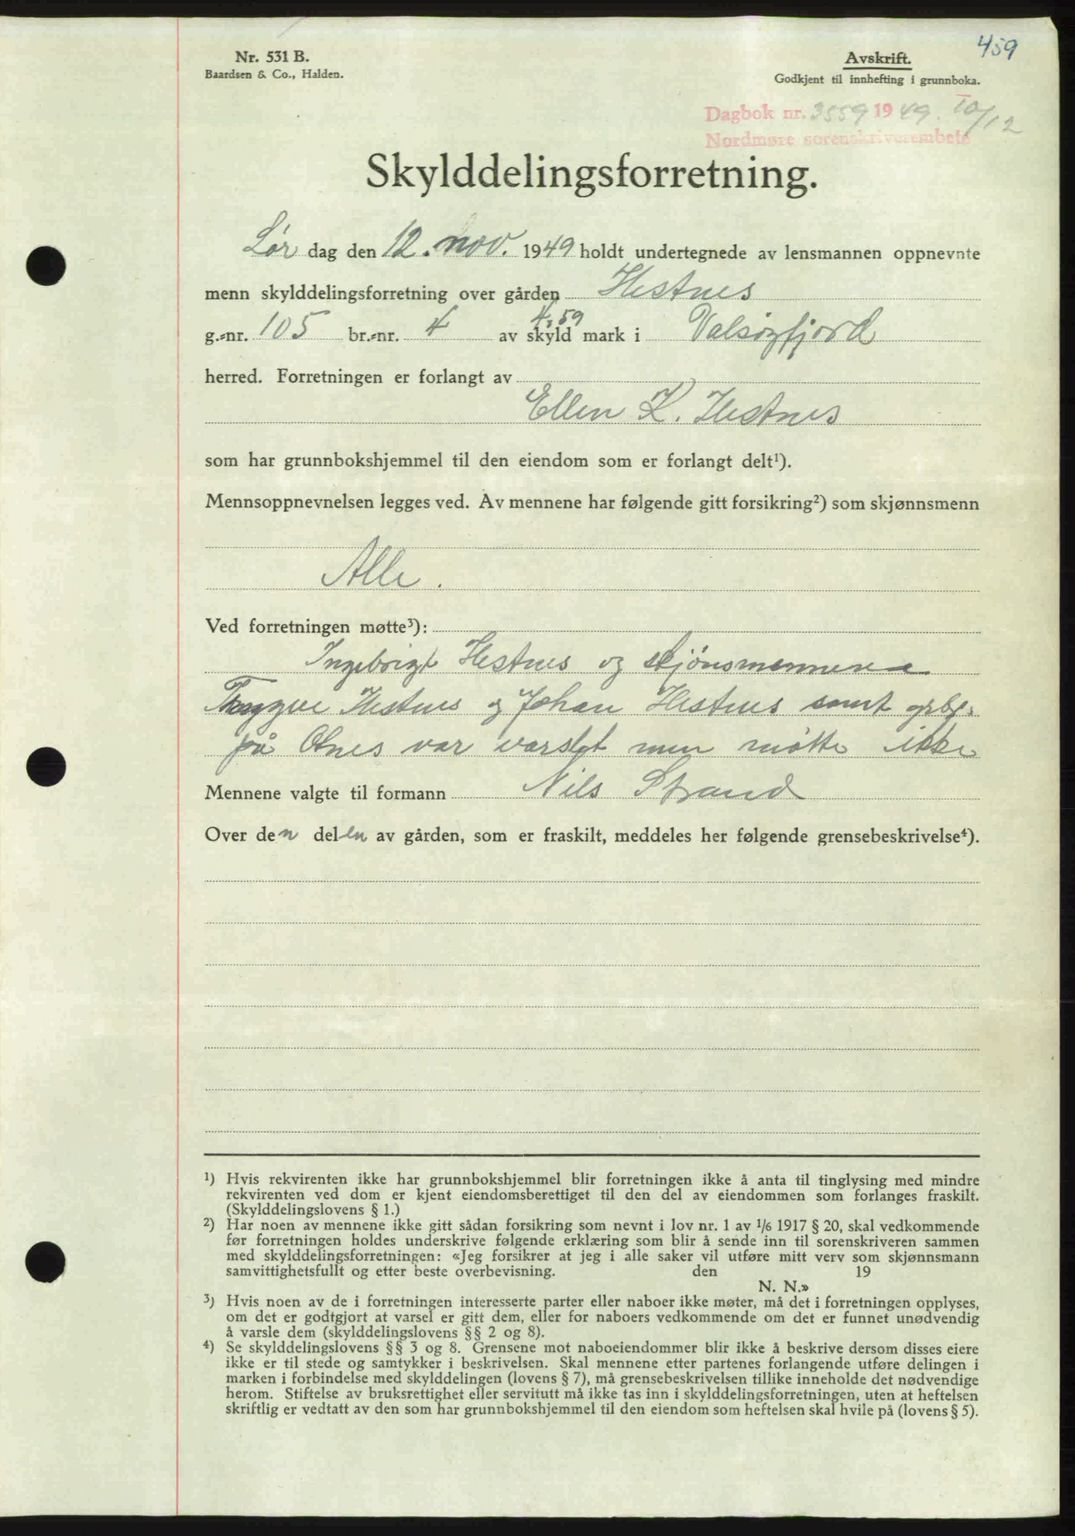 459
Nr. 531 B.
Baardsen & Co., Halden.
Avskrift.
Godkjent til innhefting i grunnboka.
Dagbok nr. 3559 1949. 10/12
Nordmøre sorenskriverembete
Skylddelingsforretning.
Lør dag den 12. nov. 1949 holdt undertegnede av lensmannen oppnevnte
menn skylddelingsforretning over gården Hestnes
g.-nr. 105 br.-nr. 4 av skyld 4,59 mark i Valsøyfjord
herred. Forretningen er forlangt av
Ellen K. Hestnes
som har grunnbokshjemmel til den eiendom som er forlangt delt¹).
Mennsoppnevnelsen legges ved. Av mennene har følgende gitt forsikring²) som skjønnsmenn
Alle.
Ved forretningen møtte³):
Ingebrigt Hestnes og skjønsmennene
Trygve Hestnes og Johan Hestnes samt
på Otnes var varslet men møtte ikke
Mennene valgte til formann Nils Strand
Over den delen av gården, som er fraskilt, meddeles her følgende grensebeskrivelse⁴).
¹) Hvis rekvirenten ikke har grunnbokshjemmel blir forretningen ikke å anta til tinglysing med mindre
rekvirenten ved dom er kjent eiendomsberettiget til den del av eiendommen som forlanges fraskilt.
(Skylddelingslovens § 1.)
²) Har noen av mennene ikke gitt sådan forsikring som nevnt i lov nr. 1 av 1/6 1917 § 20, skal vedkommende
før forretningen holdes underskrive følgende erklæring som blir å sende inn til sorenskriveren sammen
med skylddelingsforretningen: «Jeg forsikrer at jeg i alle saker vil utføre mitt verv som skjønnsmann
samvittighetsfullt og etter beste overbevisning. den 19
N. N.»
³) Hvis noen av de i forretningen interesserte parter eller naboer ikke møter, må det i forretningen opplyses,
om det er godtgjort at varsel er gitt dem, eller for naboers vedkommende om det er funnet unødvendig
å varsle dem (skylddelingslovens §§ 2 og 8).
⁴) Se skylddelingslovens §§ 3 og 8. Grensene mot naboeiendommer blir ikke å beskrive dersom disses eiere
ikke er til stede og samtykker i beskrivelsen. Skal mennene etter partenes forlangende utføre delingen i
marken i forbindelse med skylddelingen (lovens § 7), må grensebeskrivelsen tillike inneholde det nødvendige
herom. Stiftelse av bruksrettighet eller servitutt må ikke tas inn i skylddelingsforretningen, uten at heftelsen
skriftlig er vedtatt av den som har grunnbokshjemmel til den eiendom som heftelsen skal hvile på (lovens § 5).